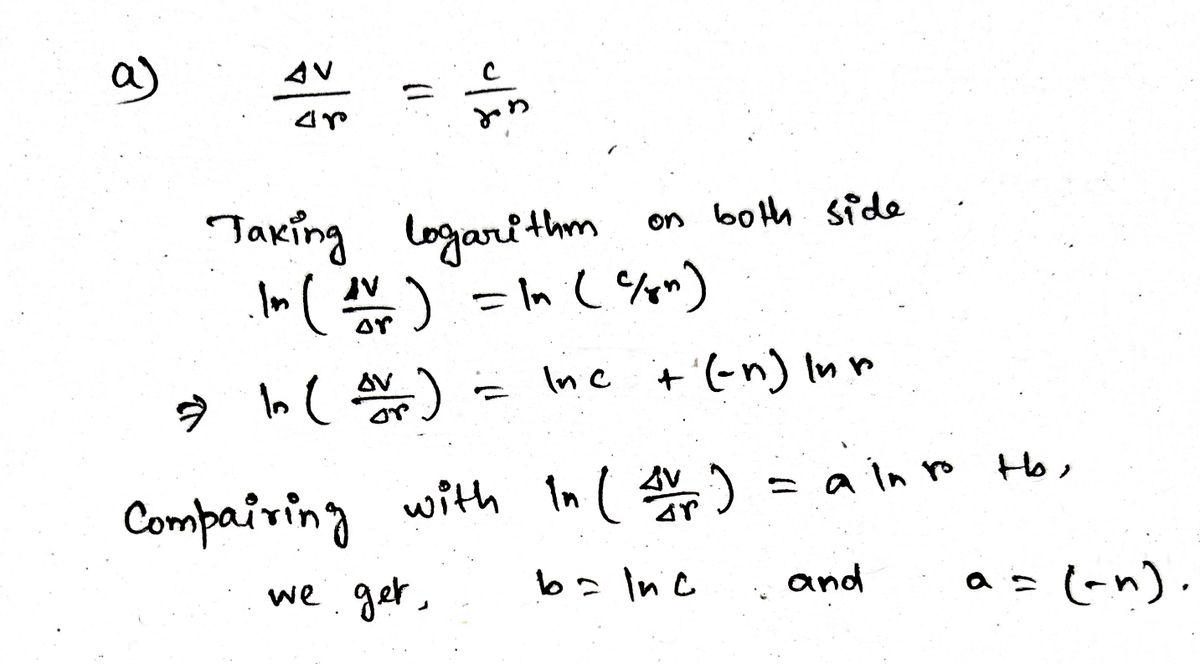 a) ΔV/Δr = c/r^n
Taking logarithm on both side
ln ( ΔV/Δr ) = ln ( c/r^n )
⇒ ln ( ΔV/Δr ) = ln c + (-n) ln r
Compairing with ln ( ΔV/Δr ) = a ln r + b,
we get, b = ln c and a = (-n).